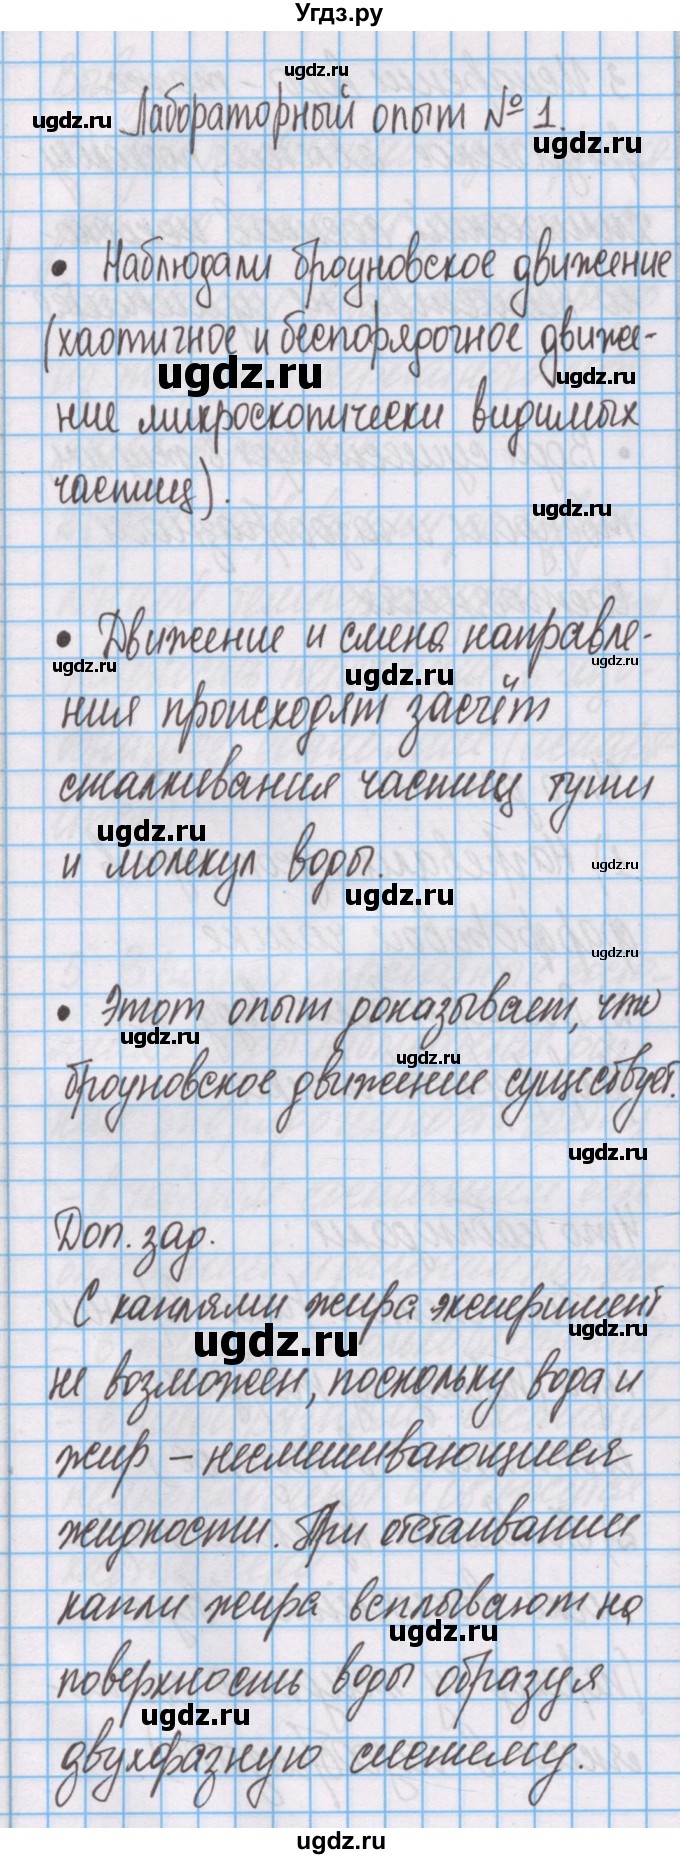 Угдз.ру
ugdz.ru
ugdz.ru
Лабораторный опыт № 1.
ugdz.ru
• Наблюдали броуновское движение
(хаотичное и беспорядочное движе-
ugdz.ru
ugdz.ru
ние микроскопически видимых
частиц).
ugdz.ru
• Движение и смена направле-
ugdz.ru
ugdz.ru
ugdz.ru
ния происходят засчёт
сталкивания частиц туши
ugdz.ru
и молекул воды.
ugdz.ru
ugdz.ru
ugdz.ru
• Этот опыт доказывает, что
ugdz.ru
ugdz.ru
броуновское движение существует.
ugdz.ru
Доп. зад.
С каплями жира эксперимент
ugdz.ru
ugdz.ru
не возможен, поскольку вода и
жир – несмешивающиеся
жидкости. При отстаивании
капли жира всплывают на
ugdz.ru
поверхность воды образуя
ugdz.ru
двухфазную систему.
ugdz.ru